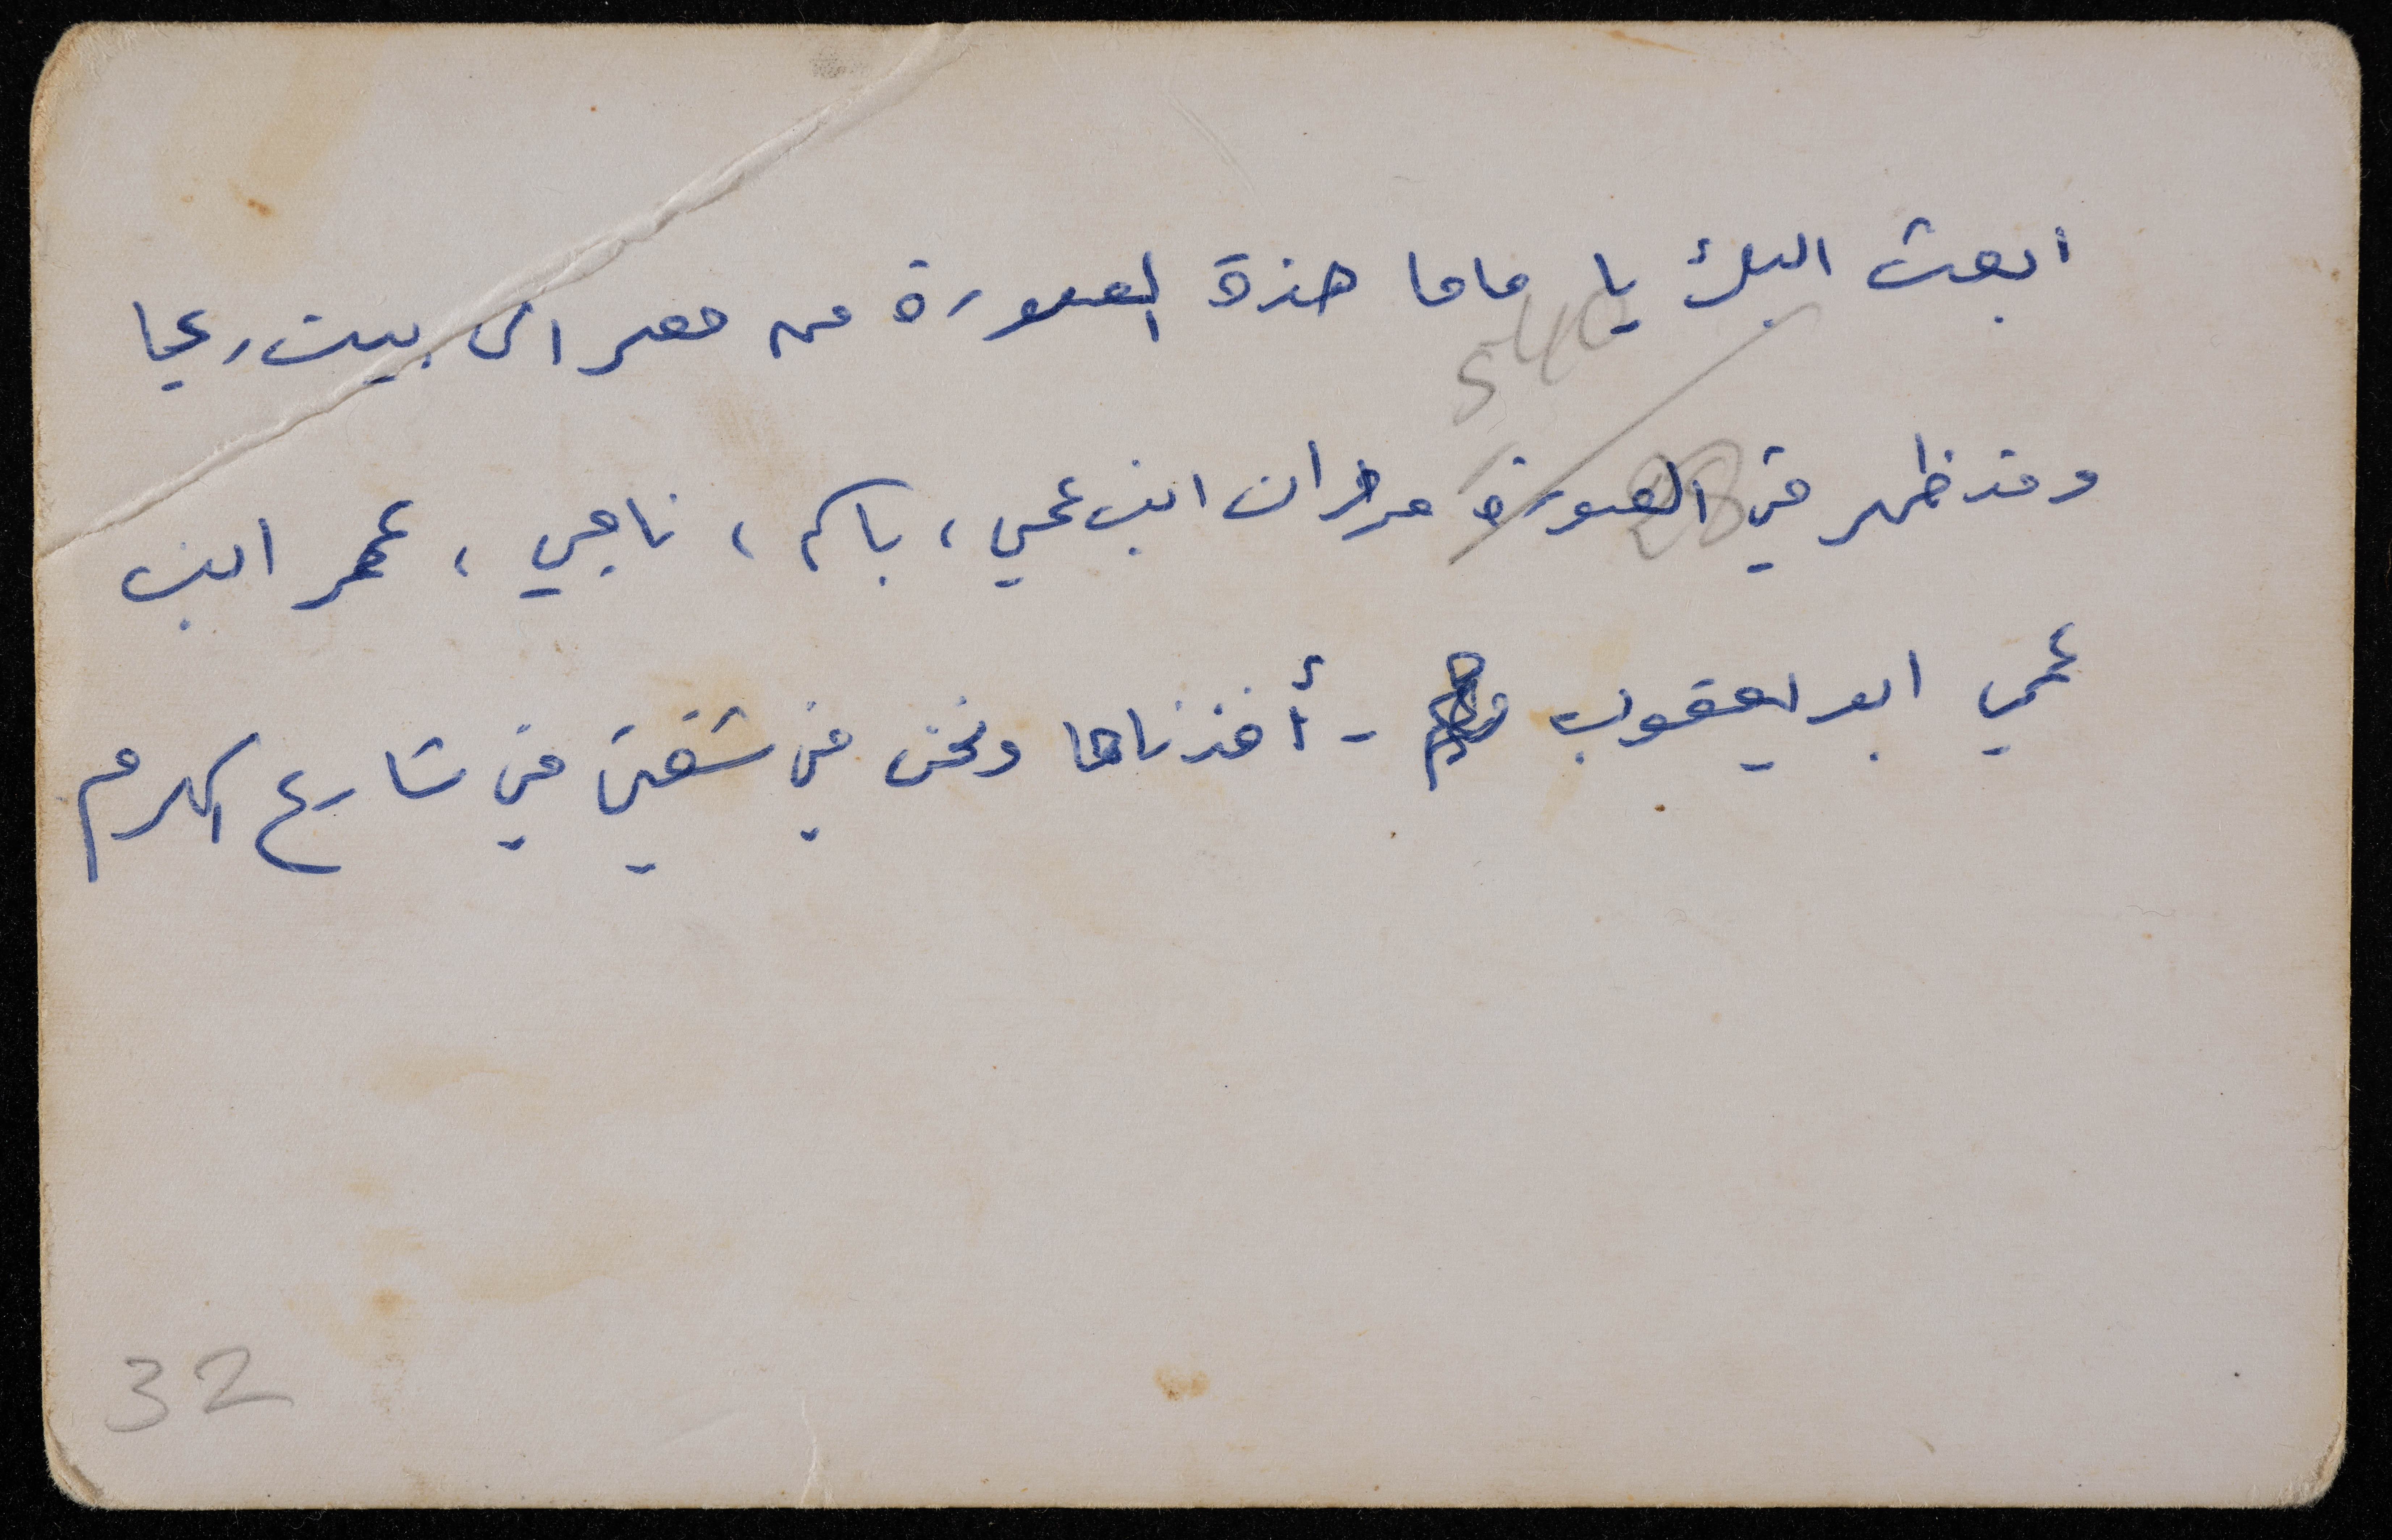 ابعث اليك يا ماما هذة الصورة من مصر الى بيت ريما
540
وقد ظهر في الصورة مروان ابن عمي ، باسم ، ناجي ، عمر ابن
28
عمي ابو يعقوب - أخذناها ونحن في شقتي في شارع الهرم
32